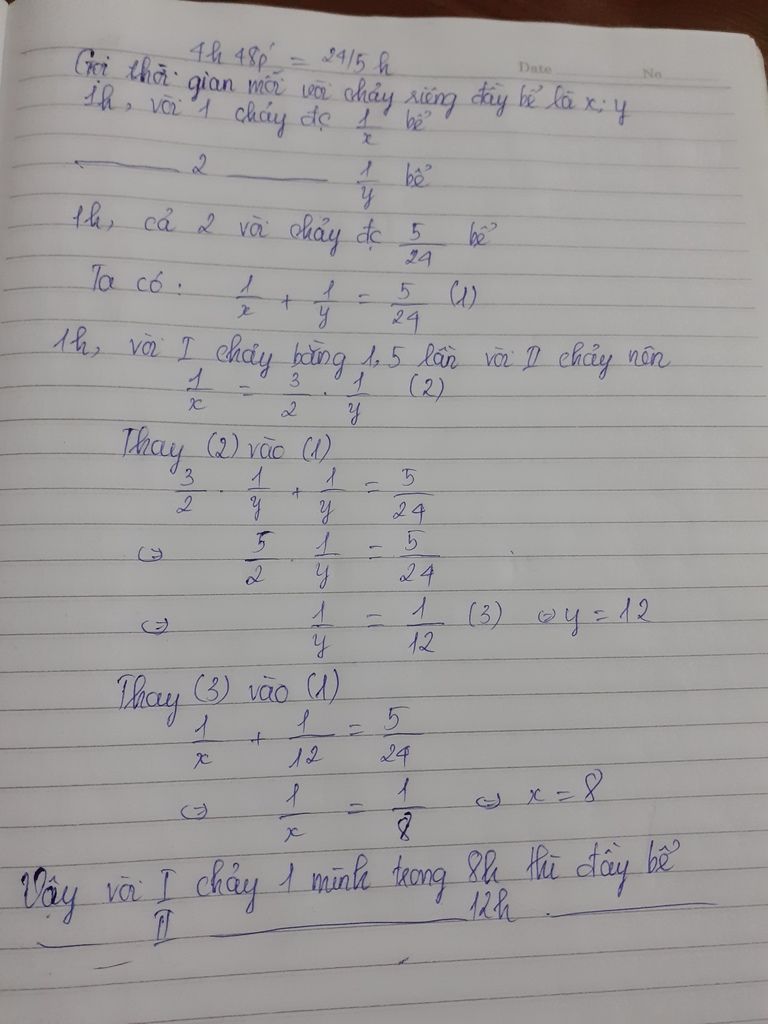 4h 48p' = 24/5 h
Date No
Gọi thời gian mỗi vòi chảy riêng đầy bể là x; y
1h, vòi 1 chảy đc 1/x bể
——— 2 ——— 1/y bể
1h, cả 2 vòi chảy đc 5/24 bể
Ta có: 1/x + 1/y = 5/24 (1)
1h, vòi I chảy bằng 1,5 lần vòi II chảy nên
1/x = 3/2 . 1/y (2)
Thay (2) vào (1)
3/2 . 1/y + 1/y = 5/24
⇔ 5/2 . 1/y = 5/24
⇔ 1/y = 1/12 (3) ⇔ y = 12
Thay (3) vào (1)
1/x + 1/12 = 5/24
⇔ 1/x = 1/8 ⇔ x = 8
Vậy vòi I chảy 1 mình trong 8h thì đầy bể
—— II ——— 12h ———